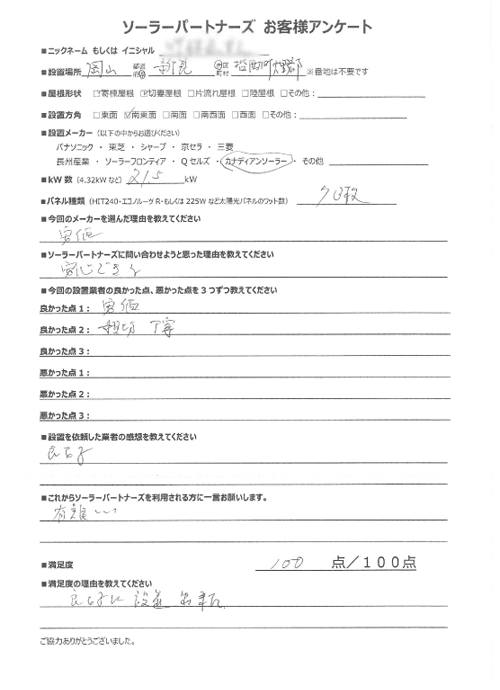 ソーラーパートナーズ お客様アンケート
■ニックネーム もしくは イニシャル
■設置場所 岡山 都道府県 新見 市区町村 ※番地は不要です
■屋根形状 □寄棟屋根 ☑切妻屋根 □片流れ屋根 □陸屋根 □その他：
■設置方角 □東面 ☑南東面 □南面 □南西面 □西面 □その他：
■設置メーカー（以下の中からお選びください）
パナソニック ・ 東芝 ・ シャープ ・ 京セラ ・ 三菱
長州産業 ・ ソーラーフロンティア ・ Qセルズ ・ カナディアンソーラー ・ その他
■kW数（4.32kWなど） kW
■パネル種類（HIT240・エコノルーツR・もしくは 225W など太陽光パネルのワット数）
■今回のメーカーを選んだ理由を教えてください
安価
■ソーラーパートナーズに問い合わせようと思った理由を教えてください
安心できる
■今回の設置業者の良かった点、悪かった点を3つずつ教えてください
良かった点1： 安価
良かった点2： 親切 丁寧
良かった点3：
悪かった点1：
悪かった点2：
悪かった点3：
■設置を依頼した業者の感想を教えてください
■これからソーラーパートナーズを利用される方に一言お願いします。
有難い
■満足度 100 点／100点
■満足度の理由を教えてください
設置 出来た
ご協力ありがとうございました。